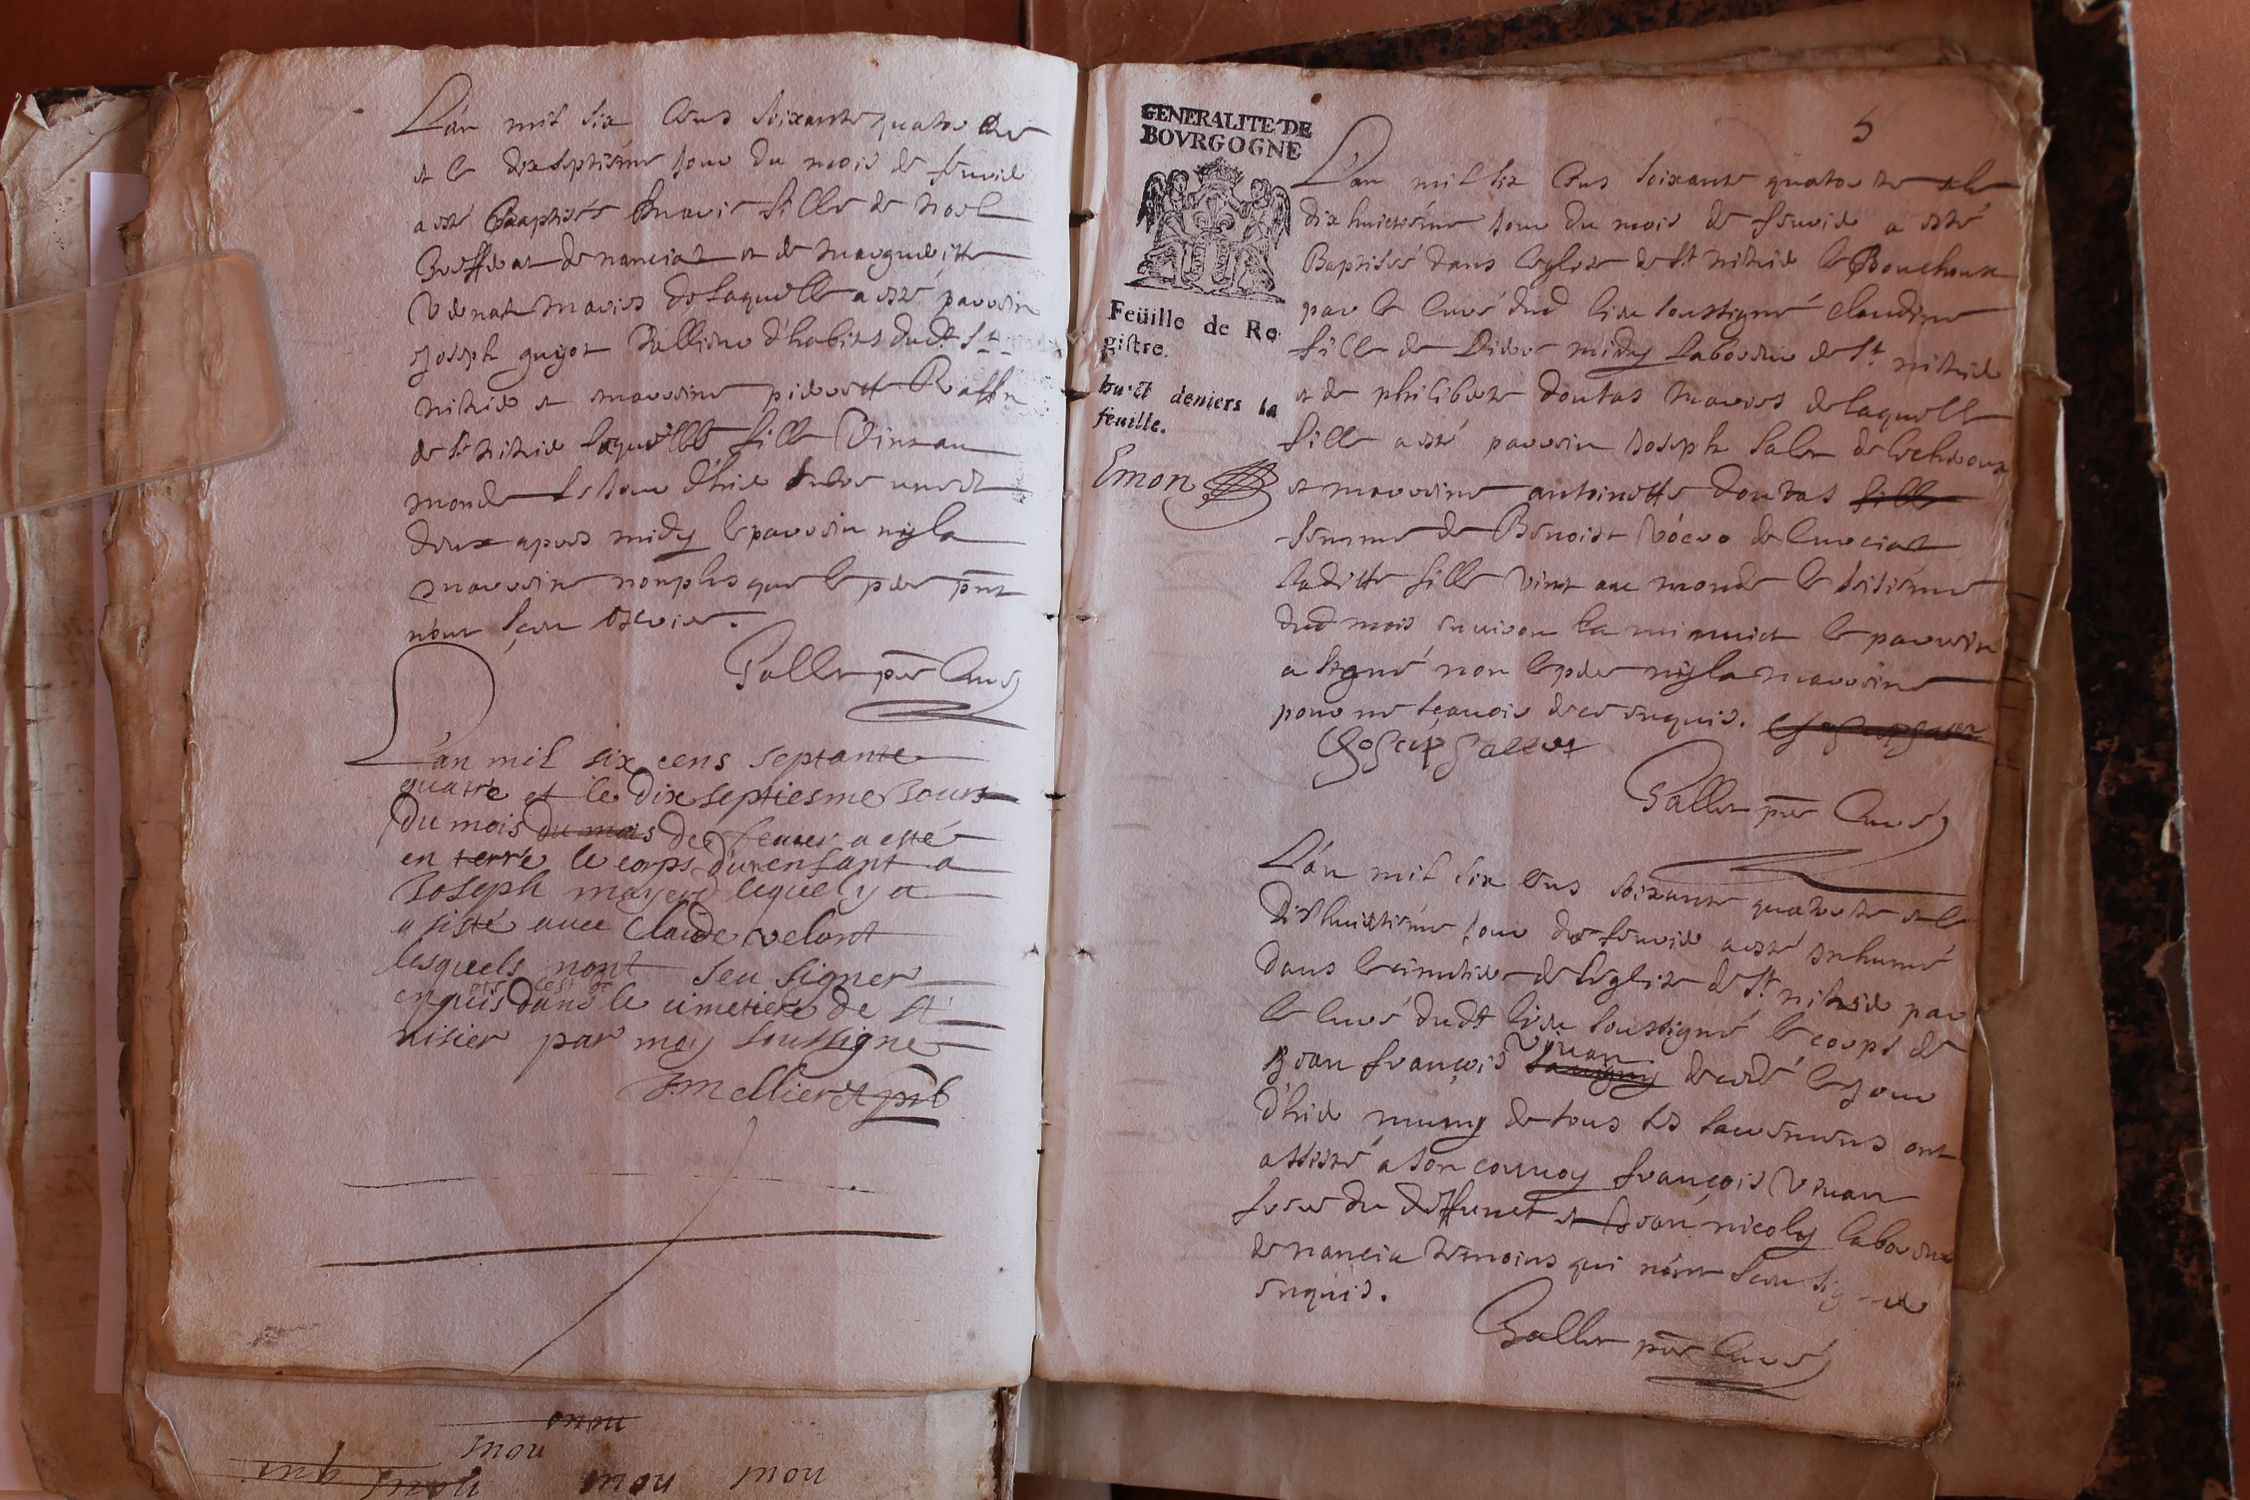 L'an mil six cens soixante quatorze
et le dix septiesme jour du mois de febvrier
a esté Baptisée marie fille de noel
de nanciat et de margueritte
mariés de laquelle a esté parrain
Joseph guyot tallieur d'habits dudt St
nizier et marraine pierrette
de St nizier laquelle fille vint au
monde le jour d'hier entre une et
deux apres midy le parrain ny la
marraine non plus que le pere pnt
n'ont sceu escrire.
Galler ptre curé
L'an mil six cens septante
quatre et le dix septiesme Jours
du mois du mois de feurer a esté
en terré le corps d'un enfant a
Joseph lequel y a
asisté auec Claude velont
lesquels nont seu signer
enquis dans le cimetiere de St
nisier par moy soussigne
Mellier
GENERALITE DE
BOVRGOGNE
Feüille de Re-
gistre.
huict deniers la
feuille.
Emon
5
L'an mil six cens soixante quatorze et le
dix huictiesme jour du mois de febvrier a esté
Baptisée dans l'eglise de St nizier le Bouchoux
par le curé dud lieu soussigné claudine
fille de midy laboureur de St nizier
et de philiberte doutas mariés de laquelle
fille a esté parrain Joseph
et marraine antoinette doutas fille
femme de Benoist de curciat
laditte fille vint au monde le seisiesme
dud mois environ la minuict le parrain
a signé non le pere ny la marraine
pour ne sçauoir de ce enquis.
Galler ptre curé
L'an mil six cens soixante quatorze et le
dixhuictiesme jour de febvrier a esté inhumé
dans le cimetiere de l'eglise de St nizier par
le curé dudt lieu soussigné le corps de
Jean françois vuan decedé le jour
d'hier muny de tous les sacremens ont
assisté a son convoy françois vuan
frere du deffunct et Jean nicoly laboureur
de nancia temoins qui n'ont sceu signer
enquis.
Galler ptre curé
onou
mou
mou mou